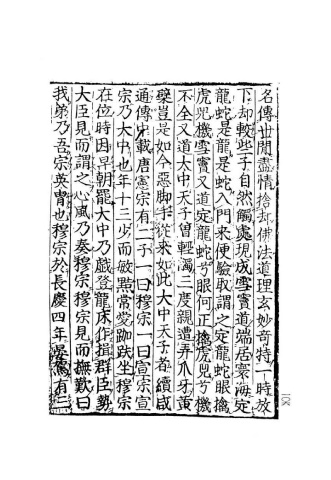 名傳世間盡情捨却佛法道理玄妙奇特一時放
下却較些子自然觸處現成雪竇道端居寰海定
龍蛇是龍是蛇入門來便驗取謂之定龍蛇眼擒
虎兕機雪竇又道定龍蛇兮眼何正擒虎兕兮機
不全又道大中天子曾輕觸三度親遭弄爪牙黃
檗豈是如今惡脚手從來如此大中天子者續咸
通傳中載唐憲宗有二子一曰穆宗一曰宣宗宣
宗乃大中也年十三少而敏黠常愛跏趺坐穆宗
在位時因早朝罷大中乃戲登龍床作揖群臣勢
大臣見而謂之心風乃奏穆宗穆宗見而撫歎曰
我弟乃吾宗英冑也穆宗於長慶四年晏駕有三